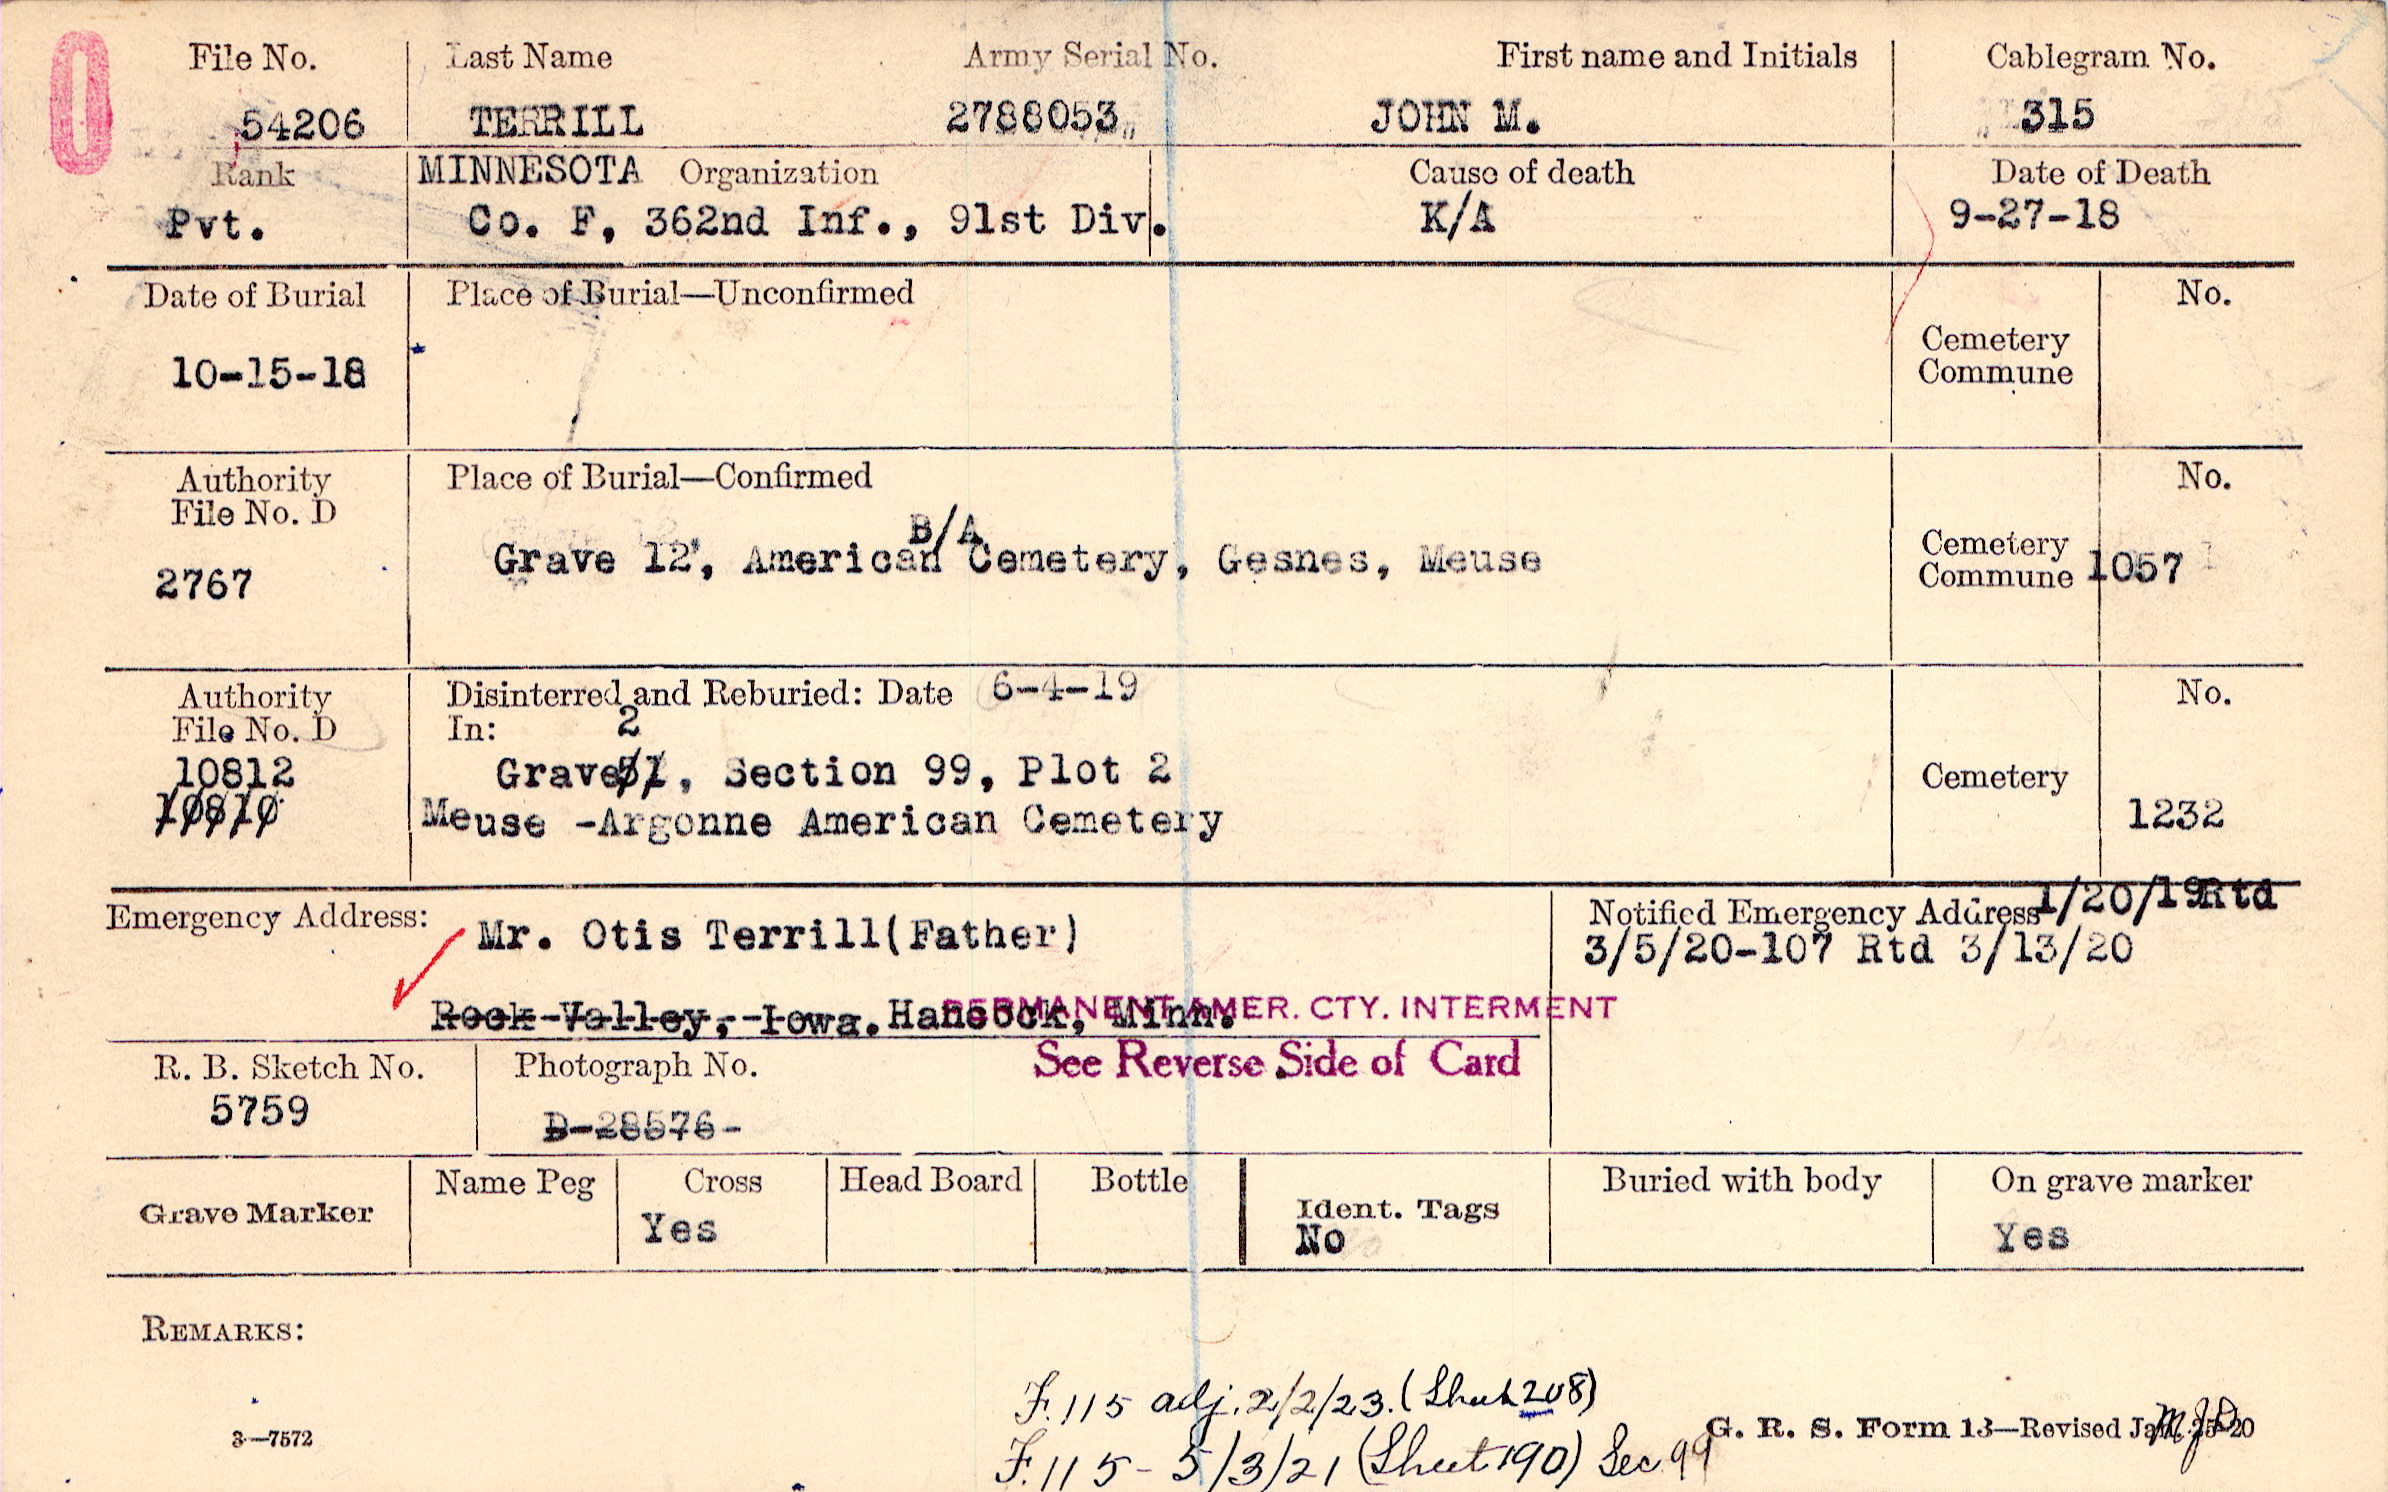 0
File No. Last Name Army Serial No. First name and Initials Cablegram No.
54206 TERRILL 2788053 JOHN M. 315
Rank MINNESOTA Organization Cause of death Date of Death
Pvt. Co. F, 362nd Inf., 91st Div. K/A 9-27-18
Date of Burial Place of Burial—Unconfirmed No.
10-15-18
Cemetery
Commune
Authority Place of Burial—Confirmed No.
File No. D
B/A
2767 Grave 12, American Cemetery, Gesnes, Meuse
Cemetery
Commune 1057
Authority Disinterred and Reburied: Date 6-4-19 No.
File No. D In: 2
10812 Grave 51, Section 99, Plot 2 Cemetery
10810 Meuse -Argonne American Cemetery 1232
Emergency Address: Mr. Otis Terrill(Father)
Notified Emergency Address 1/20/19 Rtd
3/5/20-107 Rtd 3/13/20
Rock Valley, Iowa. Hancock, Minn.
PERMANENT AMER. CTY. INTERMENT
See Reverse Side of Card
R. B. Sketch No. Photograph No.
5759 D-28576-
Grave Marker Name Peg Cross Head Board Bottle Ident. Tags Buried with body On grave marker
Yes No Yes
REMARKS:
F.115 adj. 2/2/23. (Sheet 208)
F.115 - 5/3/21 (Sheet 190) Sec. 99
3—7572
G. R. S. Form 13—Revised Jan. 25-20